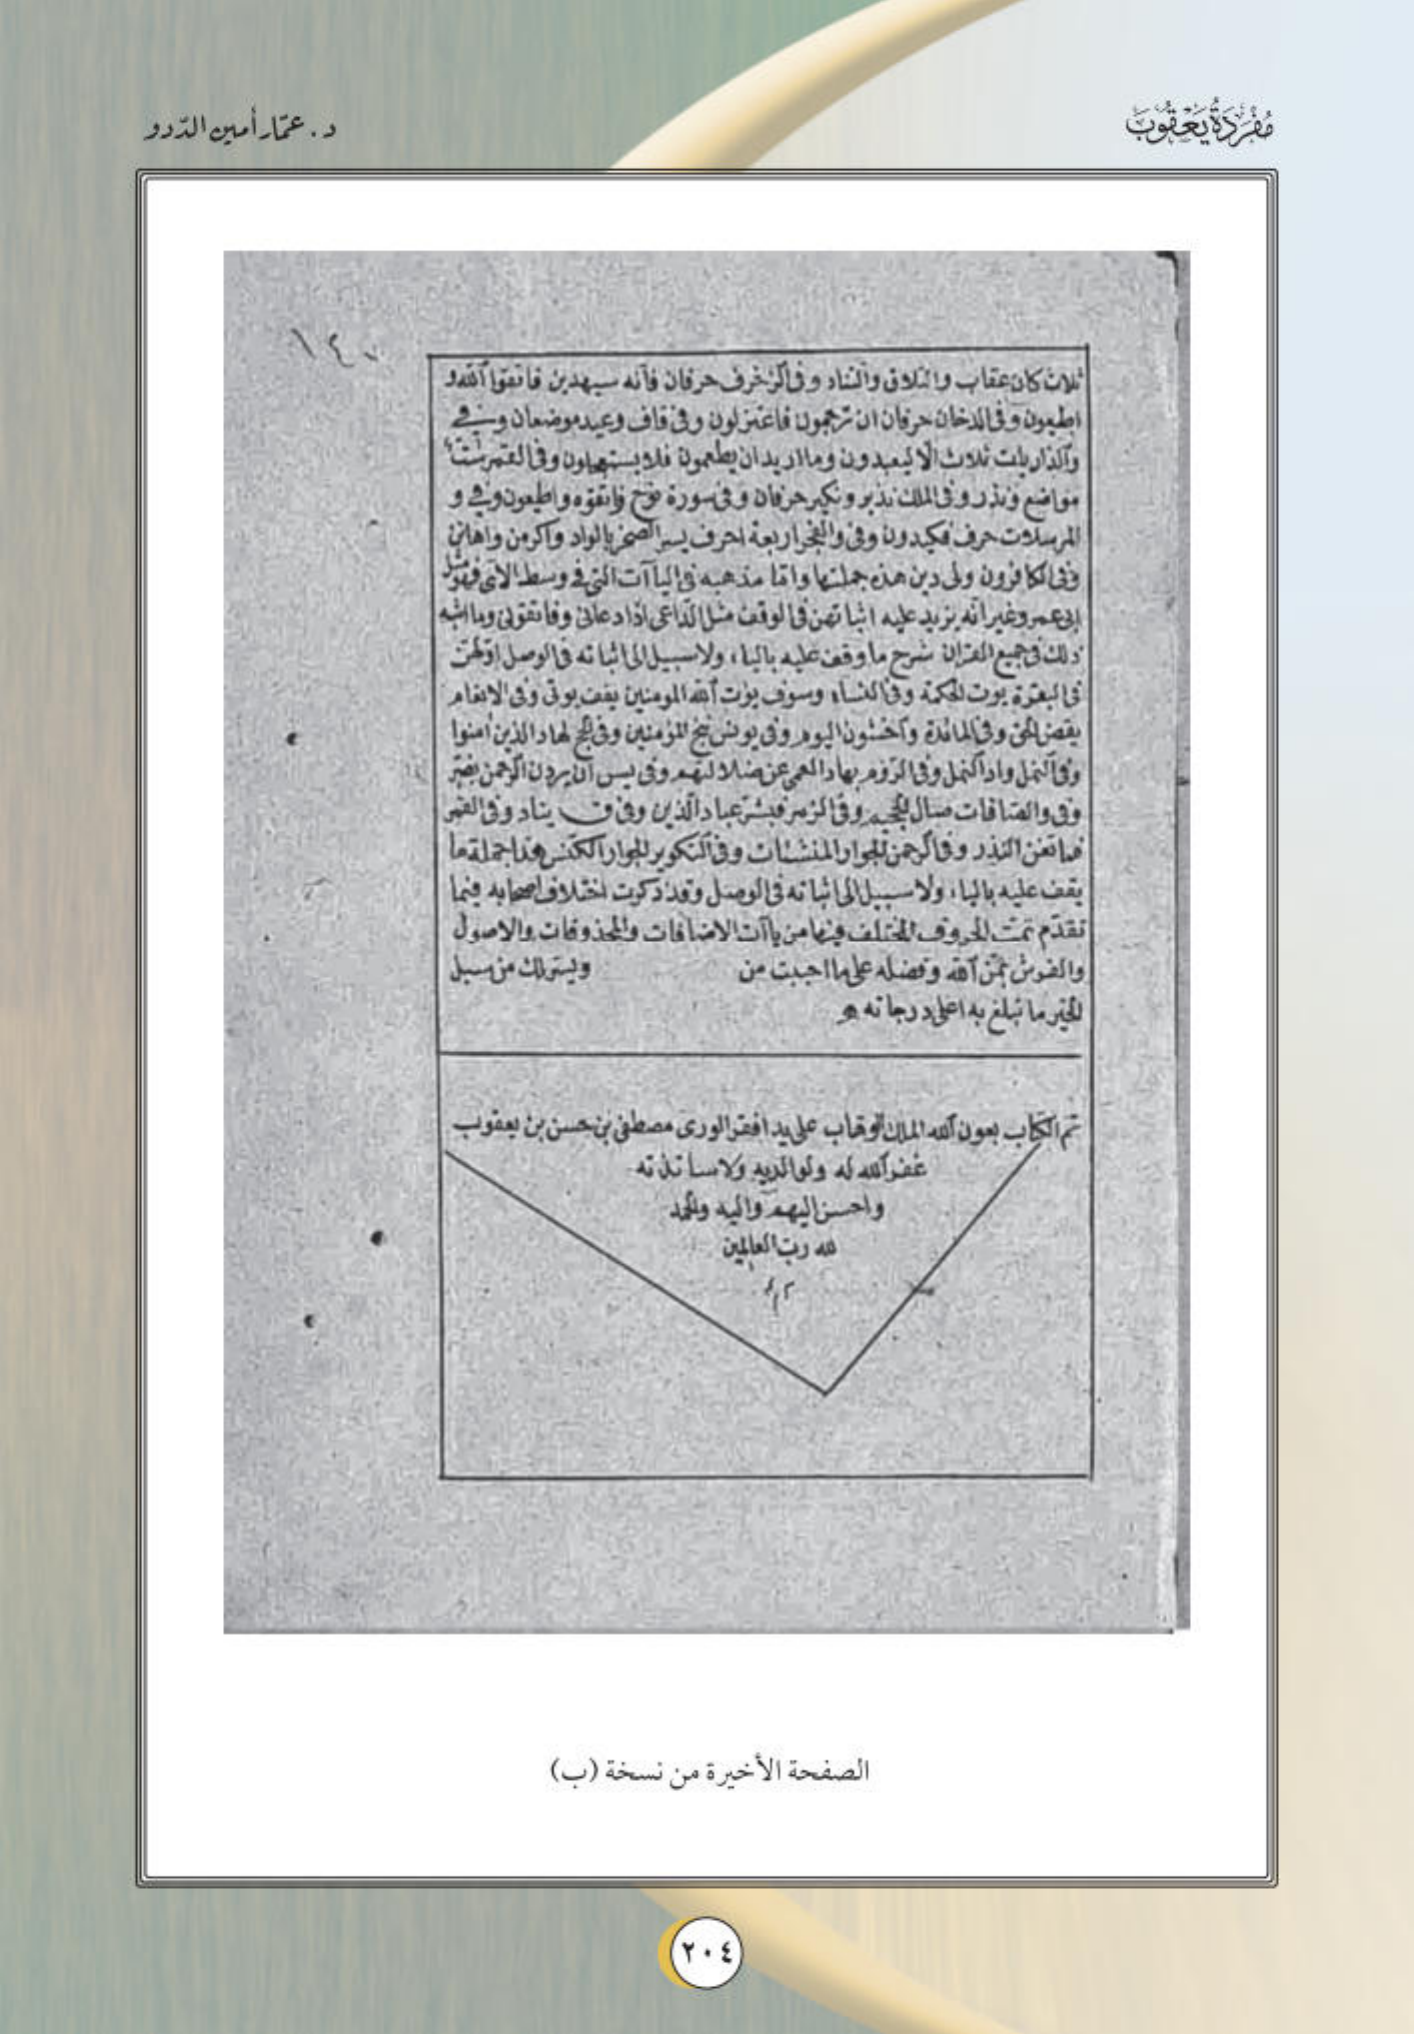 مُفْرَدَةُ يَعْقُوبَ
د. عمّار أمين الدّدو
١٤٠
ثلاث كان عقاب والتلاق والتناد وفي الزخرف حرفان فانه سيهدين فاتقوا الله و
اطيعون وفي الدخان حرفان ان ترجمون فاعتزلون وفي قاف وعيد موضعان وفي
والذاريات ثلاث الا ليعبدون وما اريد ان يطعمون فلا يستعجلون وفي القمر ستة
مواضع ونذر وفي الملك نذير ونكير حرفان وفي سورة نوح فاتقوه واطيعون وفي و
المرسلات حرف فكيدون وفي والفجر اربعة احرف يسر الصخر بالواد واكرمن واهانن
وفي الكافرون ولي دين هذه جملتها واما مذهبه في الياآت التي في وسط الآي فهو مثل
ابي عمرو غير انه يزيد عليه اثباتهن في الوقف مثل الداعي اذا دعاني وفاتقوني وما اشبه
ذلك في جميع القران شرح ما وقف عليه بالياء ولا سبيل الى اثباته في الوصل اولهن
في البقرة يوت الحكمة وفي النساء وسوف يؤت الله المومنين يقف يوتي وفي الانعام
يقض الحق وفي المائدة واخشون اليوم وفي يونس ننج المؤمنين وفي الحج لهاد الذين امنوا
وفي النمل واد النمل وفي الروم بهاد العمي عن ضلالتهم وفي يس ان يردن الرحمن بضر
وفي والصافات صال الجحيم وفي الزمر فبشر عباد الذين وفي ق يناد وفي القمر
فما تغن النذر وفي الرحمن الجوار المنشئات وفي التكوير الجوار الكنس هذا جملة ما
يقف عليه بالياء ولا سبيل الى اثباته في الوصل وقد ذكرت اختلاف اصحابه فيما
تقدم تمت الحروف المختلف فيها من ياآت الاضافات والمحذوفات والاصول
والفرش بمن الله وفضله على ما اجبت من ويسر لك من سبل
الخير ما تبلغ به اعلى درجاته
تم الكتاب بعون الله الملك الوهاب على يد افقر الورى مصطفى بن حسن بن يعقوب
غفر الله له ولوالديه ولاساتذته
واحسن اليهم واليه والحمد
لله رب العالمين
الصفحة الأخيرة من نسخة (ب)
٢٠٤